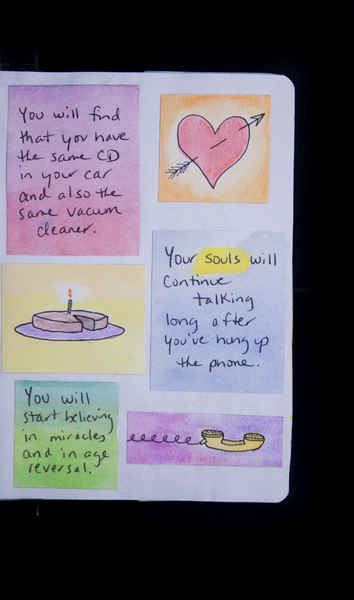 You will find
that you have
the same CD
in your car
and also the
same vacuum
cleaner.
Your souls will
continue
talking
long after
you've hung up
the phone.
You will
start believing
in miracles
and in age
reversal.